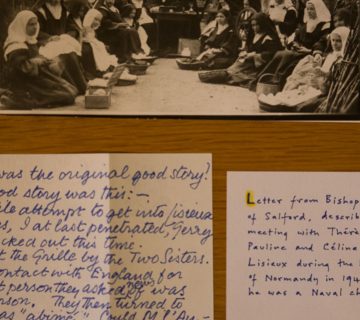 was the original good story?
od story was this:—
le attempt to get into Lisieux
s, I at last penetrated. Gerry
cked out this time.
t the Grille by the Two Sisters.
ontact with England for
t person they asked news of was
rson. They then turned to
as "abîmé". Could M. l'Au-
Letter from Bishop
of Salford, describ
meeting with Thérè
Pauline and Céline
Lisieux during the
of Normandy in 194
he was a Naval ch